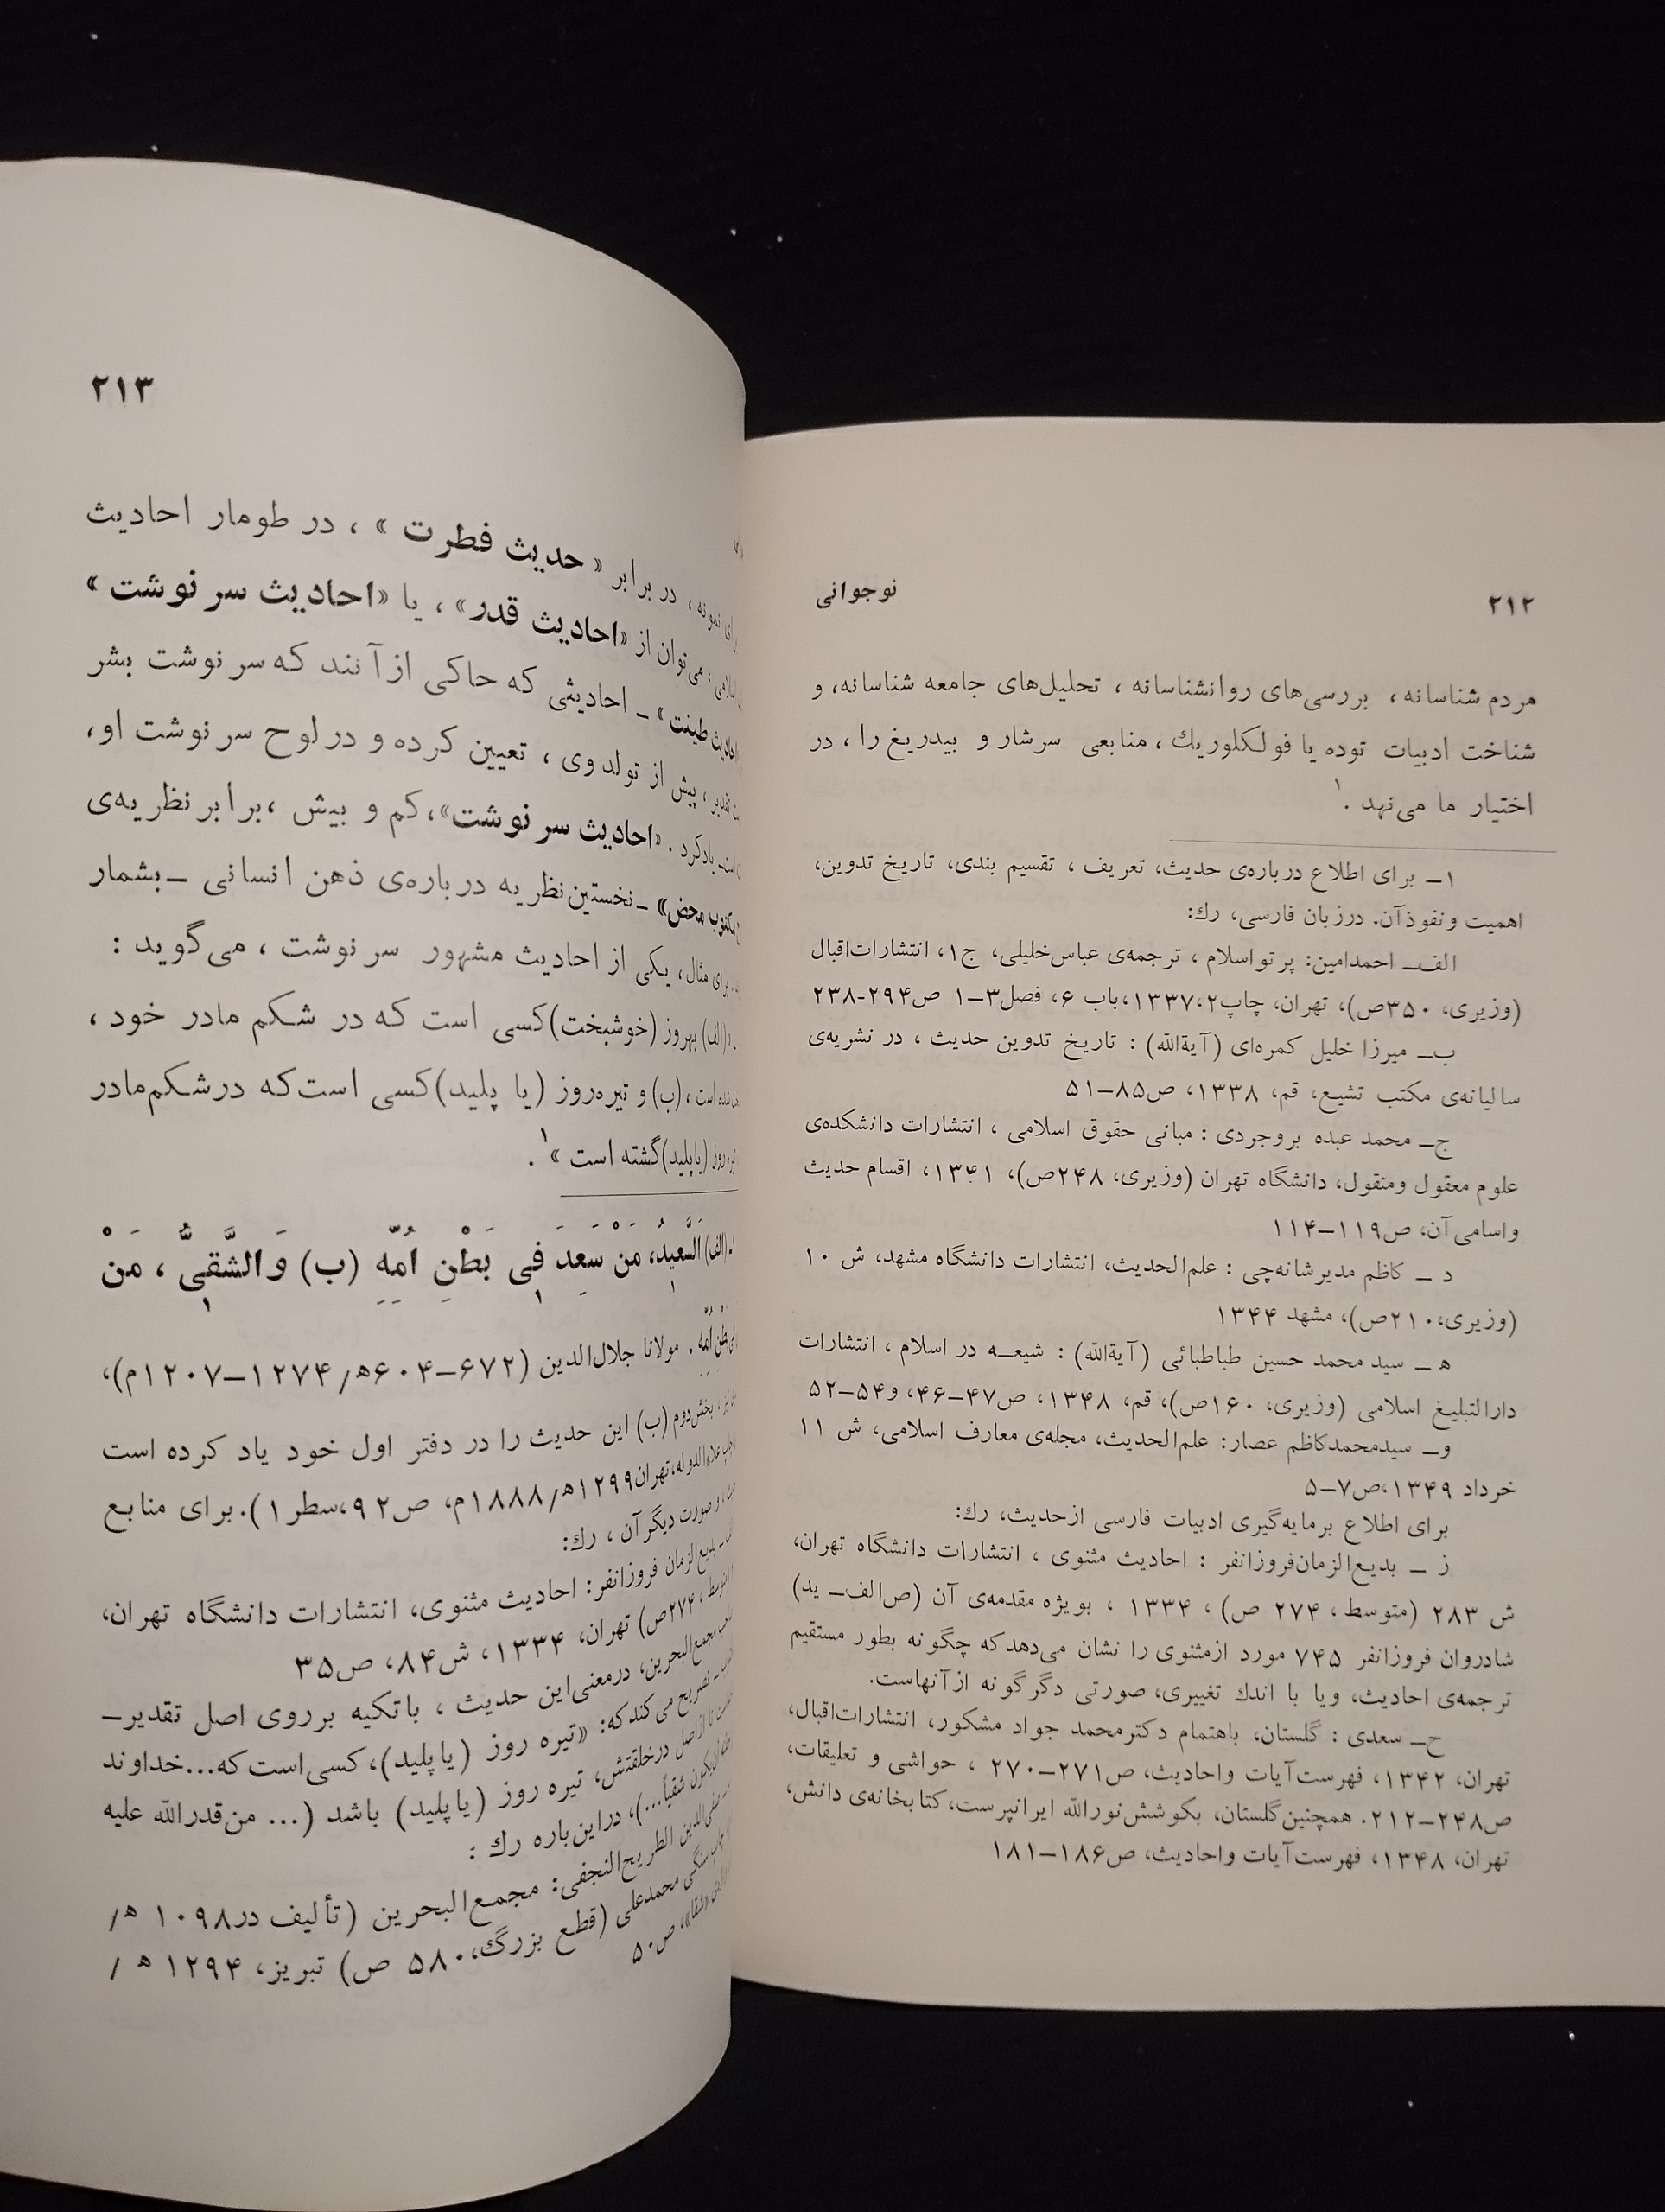 ۲۱۲
نوجوانی
مردم شناسانه، بررسی‌های روانشناسانه، تحلیل‌های جامعه شناسانه، و
شناخت ادبیات توده یا فولکلوریك، منابعی سرشار و بیدریغ را، در
اختیار ما می‌نهد.۱
۱ــ برای اطلاع درباره‌ی حدیث، تعریف، تقسیم بندی، تاریخ تدوین،
اهمیت ونفوذآن. درزبان فارسی، رك:
الف‌ــ احمدامین: پرتواسلام، ترجمه‌ی عباس‌خلیلی، ج۱، انتشارات‌اقبال
(وزیری، ۳۵۰ص)، تهران، چاپ۲،۱۳۳۷،باب ۶، فصل۳ــ۱ ص۲۹۴-۲۳۸
ب‌ــ میرزا خلیل کمره‌ای (آیةالله): تاریخ تدوین حدیث، در نشریه‌ی
سالیانه‌ی مکتب تشیع، قم، ۱۳۳۸، ص۸۵ــ۵۱
ج‌ــ محمد عبده بروجردی: مبانی حقوق اسلامی، انتشارات دانشکده‌ی
علوم معقول ومنقول، دانشگاه تهران (وزیری، ۲۴۸ص)، ۱۳۴۱، اقسام حدیث
واسامی‌آن، ص۱۱۹ــ۱۱۴
د ــ کاظم مدیرشانه‌چی: علم‌الحدیث، انتشارات دانشگاه مشهد، ش ۱۰
(وزیری،۲۱۰ص)، مشهد ۱۳۴۴
ه ــ سید محمد حسین طباطبائی (آیةالله): شیعــه در اسلام، انتشارات
دارالتبلیغ اسلامی (وزیری، ۱۶۰ص)، قم، ۱۳۴۸، ص۴۷ــ۴۶، و۵۴ــ۵۲
وــ سیدمحمدکاظم عصار: علم‌الحدیث، مجله‌ی معارف اسلامی، ش ۱۱
خرداد ۱۳۴۹،ص۷ــ۵
برای اطلاع برمایه‌گیری ادبیات فارسی ازحدیث، رك:
ز ــ بدیع‌الزمان‌فروزانفر: احادیث مثنوی، انتشارات دانشگاه تهران،
ش ۲۸۳ (متوسط، ۲۷۴ ص)، ۱۳۳۴، بویژه مقدمه‌ی آن (ص‌الف‌ــ ید)
شادروان فروزانفر ۷۴۵ مورد ازمثنوی را نشان می‌دهدکه چگونه بطور مستقیم
ترجمه‌ی احادیث، ویا با اندك تغییری، صورتی دگرگونه ازآنهاست.
ح‌ــ سعدی: گلستان، باهتمام دکترمحمد جواد مشکور، انتشارات‌اقبال،
تهران، ۱۳۴۲، فهرست‌آیات واحادیث، ص۲۷۱ــ۲۷۰، حواشی و تعلیقات،
ص۲۴۸ــ۲۱۲. همچنین‌گلستان، بکوشش‌نورالله ایرانپرست،کتابخانه‌ی دانش،
تهران، ۱۳۴۸، فهرست‌آیات واحادیث، ص۱۸۶ــ۱۸۱
۲۱۳
نمونه، در برابر «حدیث فطرت»، در طومار احادیث
می‌توان از «احادیث قدر»، یا «احادیث سرنوشت»
طینت» ــ احادیثی که حاکی ازآنند که سرنوشت بشر
پیش از تولد وی، تعیین کرده و درلوح سرنوشت او،
یادکرد. «احادیث سرنوشت»،کم و بیش،برابر نظریه‌ی
محض» ــنخستین‌نظریه درباره‌ی ذهن انسانی ــبشمار
مثال، یکی از احادیث مشهور سرنوشت، می‌گوید:
(الف) بهروز (خوشبخت)کسی است که در شکم مادر خود،
است، (ب) و تیره‌روز (یا پلید)کسی است‌که درشکم‌مادر
روز (یاپلید)گشته است»۱.
۱ــ (الف) اَلسَّعِیدُ، مَنْ سَعِدَ فِی بَطْنِ اُمِّهِ (ب) وَالشَّقِیُّ، مَنْ
بَطْنِ اُمِّهِ. مولانا جلال‌الدین (۶۷۲ــ۶۰۴ه/۱۲۷۴ــ۱۲۰۷م)،
بخش‌دوم (ب) این حدیث را در دفتر اول خود یاد کرده است
علاءالدوله،تهران۱۲۹۹ه/۱۸۸۸م، ص۹۲،سطر۱). برای منابع
و صورت دیگرآن، رك:
بدیع‌الزمان فروزانفر: احادیث مثنوی، انتشارات دانشگاه تهران،
۲۷۴ص) تهران، ۱۳۳۴، ش۸۴، ص۳۵
مجمع‌البحرین، درمعنی‌این حدیث، باتکیه برروی اصل تقدیرــ
تصریح می‌کندکه: «تیره روز (یاپلید)، کسی‌است‌که...خداوند
ازاصل درخلقتش، تیره روز (یاپلید) باشد (... من‌قدرالله علیه
یکون شقیاً...)، دراین‌باره رك:
صفی‌الدین الطریح‌النجفی: مجمع‌البحرین (تألیف در۱۰۹۸ ه/
سنگی محمدعلی (قطع بزرگ،۵۸۰ ص) تبریز، ۱۲۹۴ ه/
«شقا»، ص۵۰